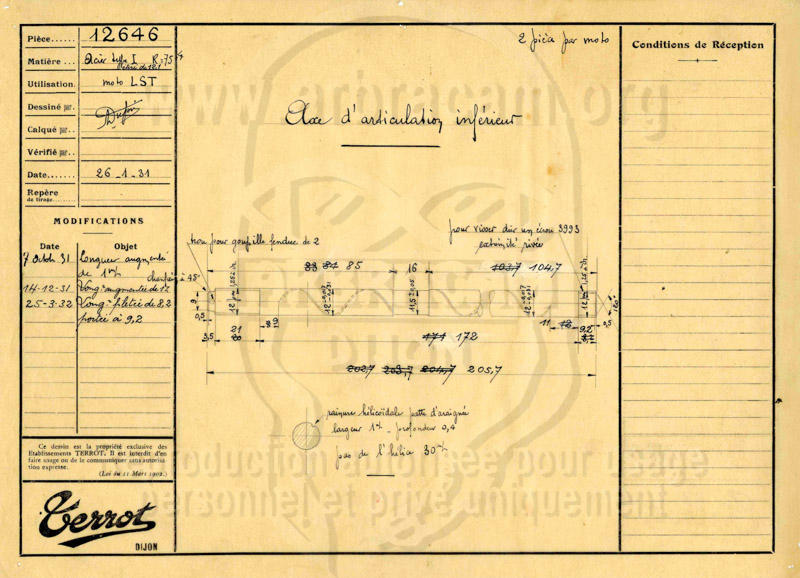 Pièce 12646
Matière Acier type I R=75
Utilisation moto LST
Dessiné par
Calqué par
Vérifié par
Date 26-1-31
Repère
de tirage
MODIFICATIONS
Date Objet
7 Octob 31 Longueur augmentée
de 1 m/m
14-12-31 Long^r augmentée de 1
25-3-32 Long^r filetée de 8,2
portée à 9,2
Ce dessin est la propriété exclusive des
Etablissements TERROT. Il est interdit d'en
faire usage ou de le communiquer sans autorisa-
tion expresse.
(Loi du 11 Mars 1902.)
Terrot
DIJON
2 pièces par moto
Axe d'articulation inférieur
trou pour goupille fendue de 2
pour visser dur un écrou 3993
extrémité rivée
chanfrein à 45°
83 84 85
16
103,7 104,7
9
0,5
3,5
21
171 172
11
9,2
0,5
202,7 203,7 204,7 205,7
rainure hélicoïdale patte d'araignée
largeur 1 m/m - profondeur 0,4
pas de l'hélice 30 m/m
Conditions de Réception
www.arbracam.org
reproduction autorisée pour usage
personnel et privé uniquement